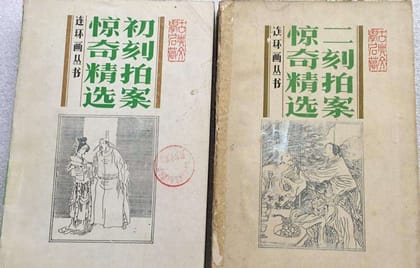 初刻拍案
惊奇精选
连环画丛书
二刻拍案
惊奇精选
连环画丛书